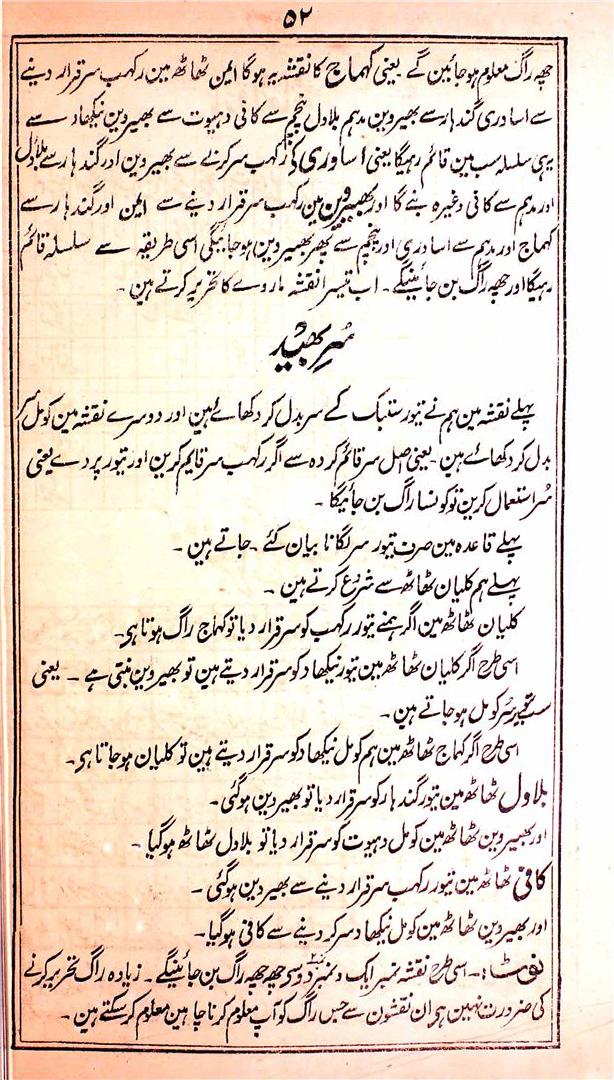 ۵۲
چھہ راگ معلوم ہو جائین گے یعنی کہماج کا نقشہ یہ ہوگا ایمن ٹھاٹھ مین رکہب سر قرار دینے
سے اساوری گندہار سے بھیروین مدہم بلاول پنچم سے کافی دہیوت سے بھیروین نیکھاد سے
یہی سلسلہ سب مین قائم رہیگا یعنی اساوری کی رکہب سر کرنے سے بھیروین اور گندہار سے بلاول
اور مدہم سے کافی وغیرہ بنے گا اور بھیروین مین رکہب سر قرار دینے سے ایمن اور گندہار سے
کہماج اور مدہم سے اساوری اور پنچم سے پھر بھیروین ہو جائیگی اسی طریقہ سے سلسلہ قائم
رہیگا اور چھہ راگ بن جائینگے ۔ اب تیسرا نقشہ ماروے کا تحریر کرتے ہین ۔
سُر بھید
پہلے نقشہ مین ہم نے تیور ستبک کے سر بدل کر دکھائے ہین اور دوسرے نقشہ مین کومل سر
بدل کر دکھائے ہین ۔ یعنی اصل سر قائم کردہ سے اگر رکہب سر قایم کرین اور تیور پردے یعنی
سُر استعمال کرین تو کونسا راگ بن جائیگا ۔
پہلے قاعدہ مین صرف تیور سر لگانا بیان کئے ۔ جاتے ہین ۔
پہلے ہم کلیان ٹھاٹھ سے شروع کرتے ہین ۔
کلیان ٹھاٹھ مین اگر ہمنے تیور رکہب کو سر قرار دیا تو کہماج راگ ہوتا ہی۔
اسی طرح اگر کلیان ٹھاٹھ مین تیور نیکھاد کو سر قرار دیتے ہین تو بھیروین بنتی ہے ۔ یعنی
سب تیور سُر کومل ہو جاتے ہین ۔
اسی طرح اگر کہماج ٹھاٹھ مین ہم کومل نیکھاد کو سر قرار دیتے ہین تو کلیان ہو جاتا ہی۔
بلاول ٹھاٹھ مین تیور گندہار کو سر قرار دیا تو بھیروین ہوگئی ۔
اور بھیروین ٹھاٹھ مین کومل دہیوت کو سر قرار دیا تو بلاول ٹھاٹھ ہوگیا ۔
کافی ٹھاٹھ مین تیور رکہب سر قرار دینے سے بھیروین ہوگئی ۔
اور بھیروین ٹھاٹھ مین کومل نیکھاد سر کر دینے سے کافی ہوگیا۔
نوٹ :۔ اسی طرح نقشہ نمبر ایک و نمبر دو سی چھہ چھہ راگ بن جائینگے ۔ زیادہ راگ تحریر کرنے
کی ضرورت نہین ہی ان نقشون سے جس راگ کو آپ معلوم کرنا چاہین معلوم کر سکتے ہین ۔